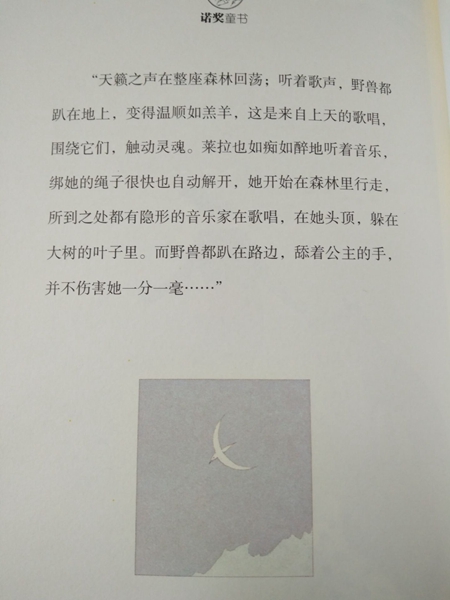 诺奖童书
“天籁之声在整座森林回荡；听着歌声，野兽都
趴在地上，变得温顺如羔羊，这是来自上天的歌唱，
围绕它们，触动灵魂。莱拉也如痴如醉地听着音乐，
绑她的绳子很快也自动解开，她开始在森林里行走，
所到之处都有隐形的音乐家在歌唱，在她头顶，躲在
大树的叶子里。而野兽都趴在路边，舔着公主的手，
并不伤害她一分一毫……”